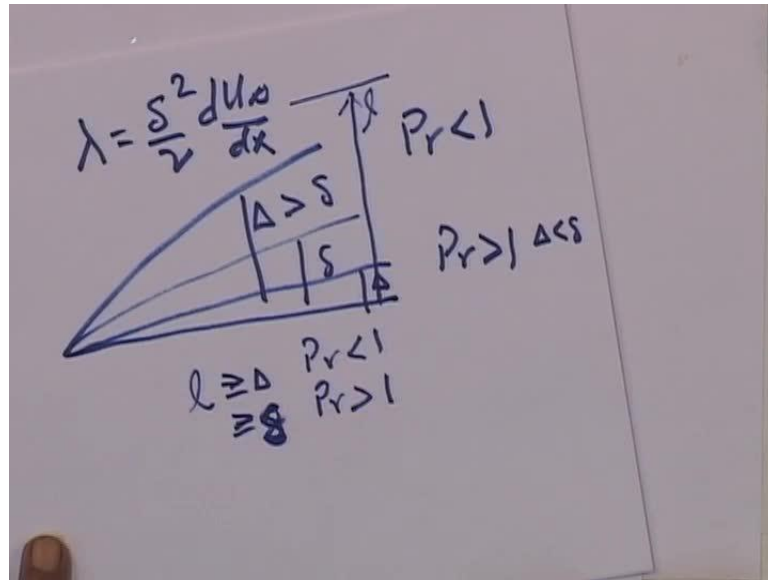 λ = δ²/ν dU∞/dx
l
Pr<1
Δ > δ
δ
Δ
Pr>1 Δ<δ
l ≥ Δ Pr<1
≥ δ Pr>1